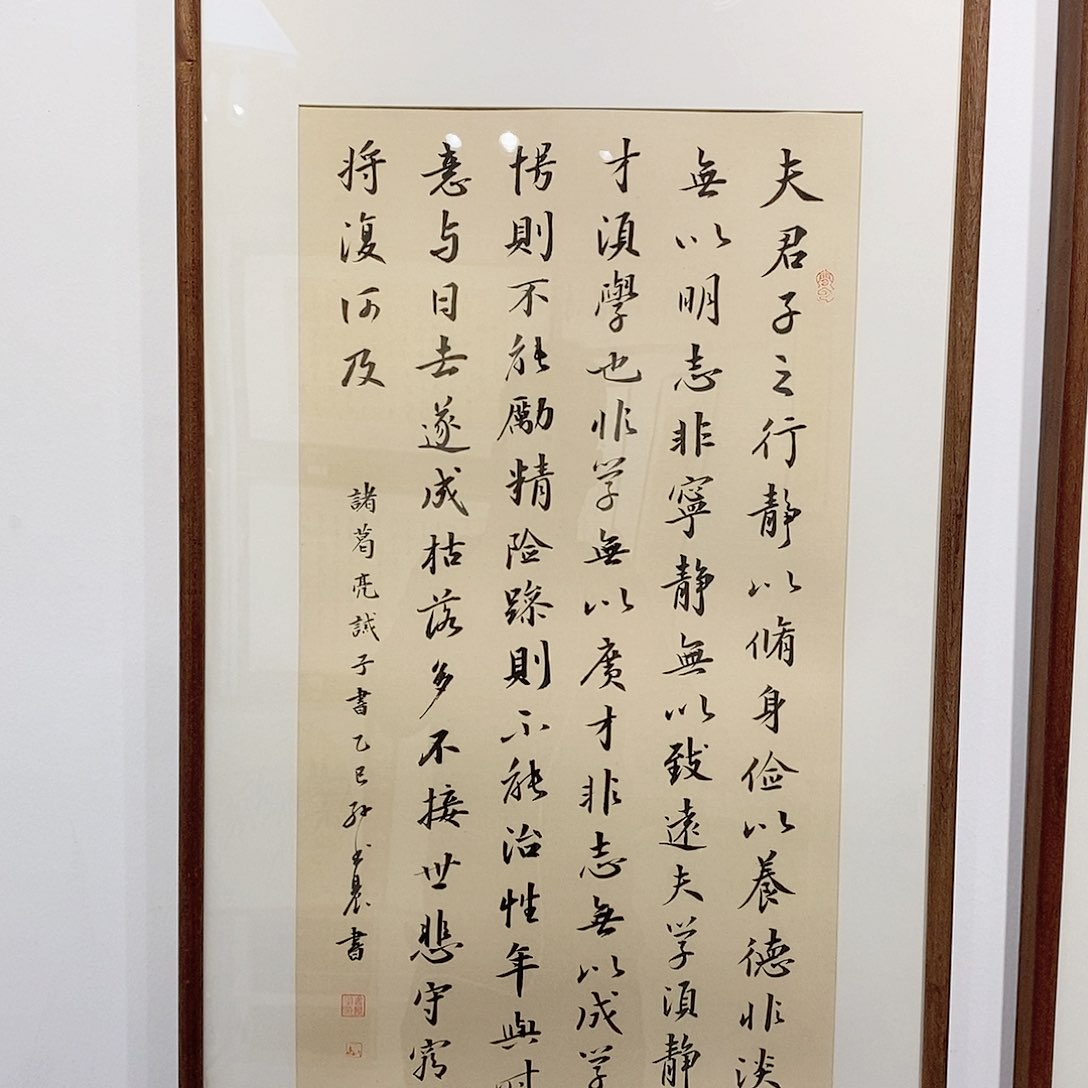 夫君子之行静以脩身俭以養德非淡
無以明志非寧静無以致遠夫学須静
才須學也非学無以廣才非志無以成学
則不能勵精险躁則不能治性年與时
意与日去遂成枯落多不接世悲守窮
将復何及
諸葛亮誡子書乙巳孙晨書